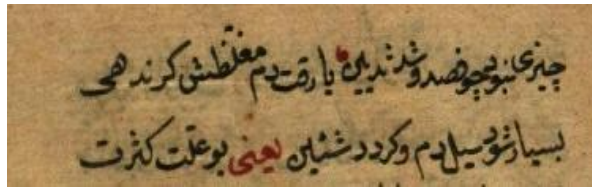 چیزی نبود چو فصد و شد ثدیین یا رقت دم مغلظش کرند همی
بسیار شود سیل دم و کردد یعنی بو علت کثرت